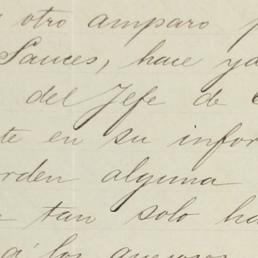 otro amparo
Sauces, hace ya
del Jefe de
te en su infor
rden alguna
tan solo ha
á los